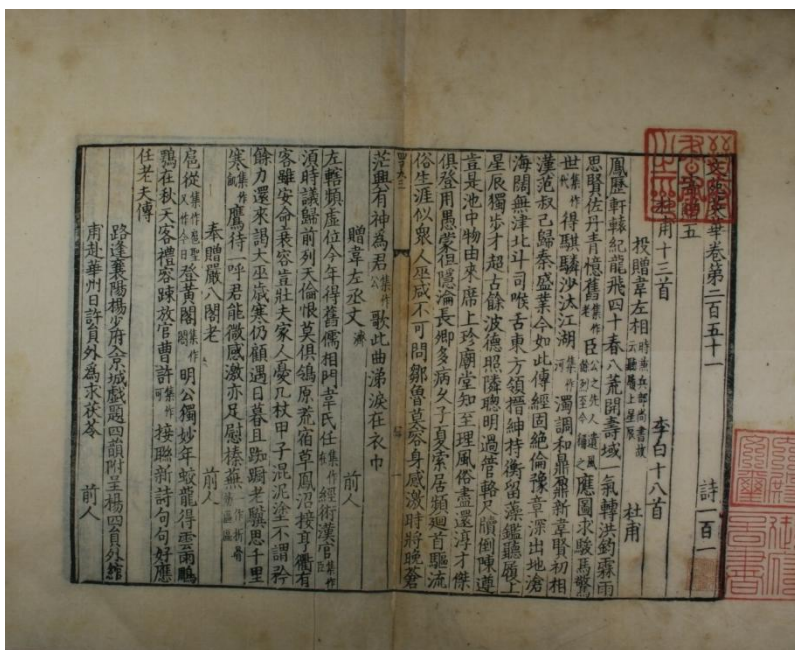 文苑英華卷第二百五十一 詩一百一
杜甫十三首 李白十八首
投贈韋左相 時兼兵部尚書故云聽履上星辰 杜甫
鳳歷軒轅紀龍飛四十春八荒開壽域一氣轉洪鈞霖雨
思賢佐丹青憶舊集作老臣公之先人遺風餘烈至今稱之應圖求駿馬驚
世集作代得騏驎沙汰江湖集作河濁調和鼎鼐新韋賢初相
漢范叔已歸秦盛業今如此傳經固絕倫豫章深出地滄
海闊無津北斗司喉舌東方領搢紳持衡留藻鑑聽履上
星辰獨步才超古餘波德照隣聰明過管輅尺牘倒陳遵
豈是池中物由來席上珍廟堂知至理風俗盡還淳才傑
俱登用愚蒙但隱淪長卿多病久子夏索居頻廻首驅流
俗生涯似衆人巫咸不可問鄒魯莫容身感激時將晚蒼
茫興有神為君集作公歌此曲涕淚在衣巾
贈韋左丞丈濟 前人
左轄頻虛位今年得舊儒相門韋氏在集作經術漢官集作臣
須時議歸前列天倫恨莫俱鴒原荒宿草鳳沼接亨衢有
客雖安命衰容豈壯夫家人憂几杖甲子混泥塗不謂矜
餘力還來謁大巫歲寒仍顧遇日暮且踟蹰老驥思千里
寒集作飢鷹待一呼君能微感激亦足慰榛蕪
奉贈嚴八閣老 前人
扈從集作扈聖又作今日登黃閣集作閤明公獨妙年蛟龍得雲雨鵰
鶚在秋天客禮容疎放官曹許集作可接聯新詩句句好應
任老夫傳
路逢襄陽楊少府入京城戲題四韻附呈楊四員外綰
甫赴華州日許員外為求茯苓 前人